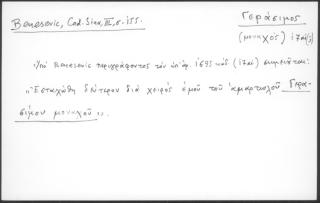 Benesevic, Cod. Sina, III, σ. 155.
Γεράσιμος
(μοναχός) 17αι(;)
Ὑπὸ Benesevic περιγράφοντος τὸν ὑπ' ἀρ. 1595 κώδ. (17αι) σημειοῦται:
„Ἐσταχώθη δεύτερον διὰ χειρὸς ἐμοῦ τοῦ ἁμαρτωλοῦ Γερα-
σίμου μοναχοῦ".